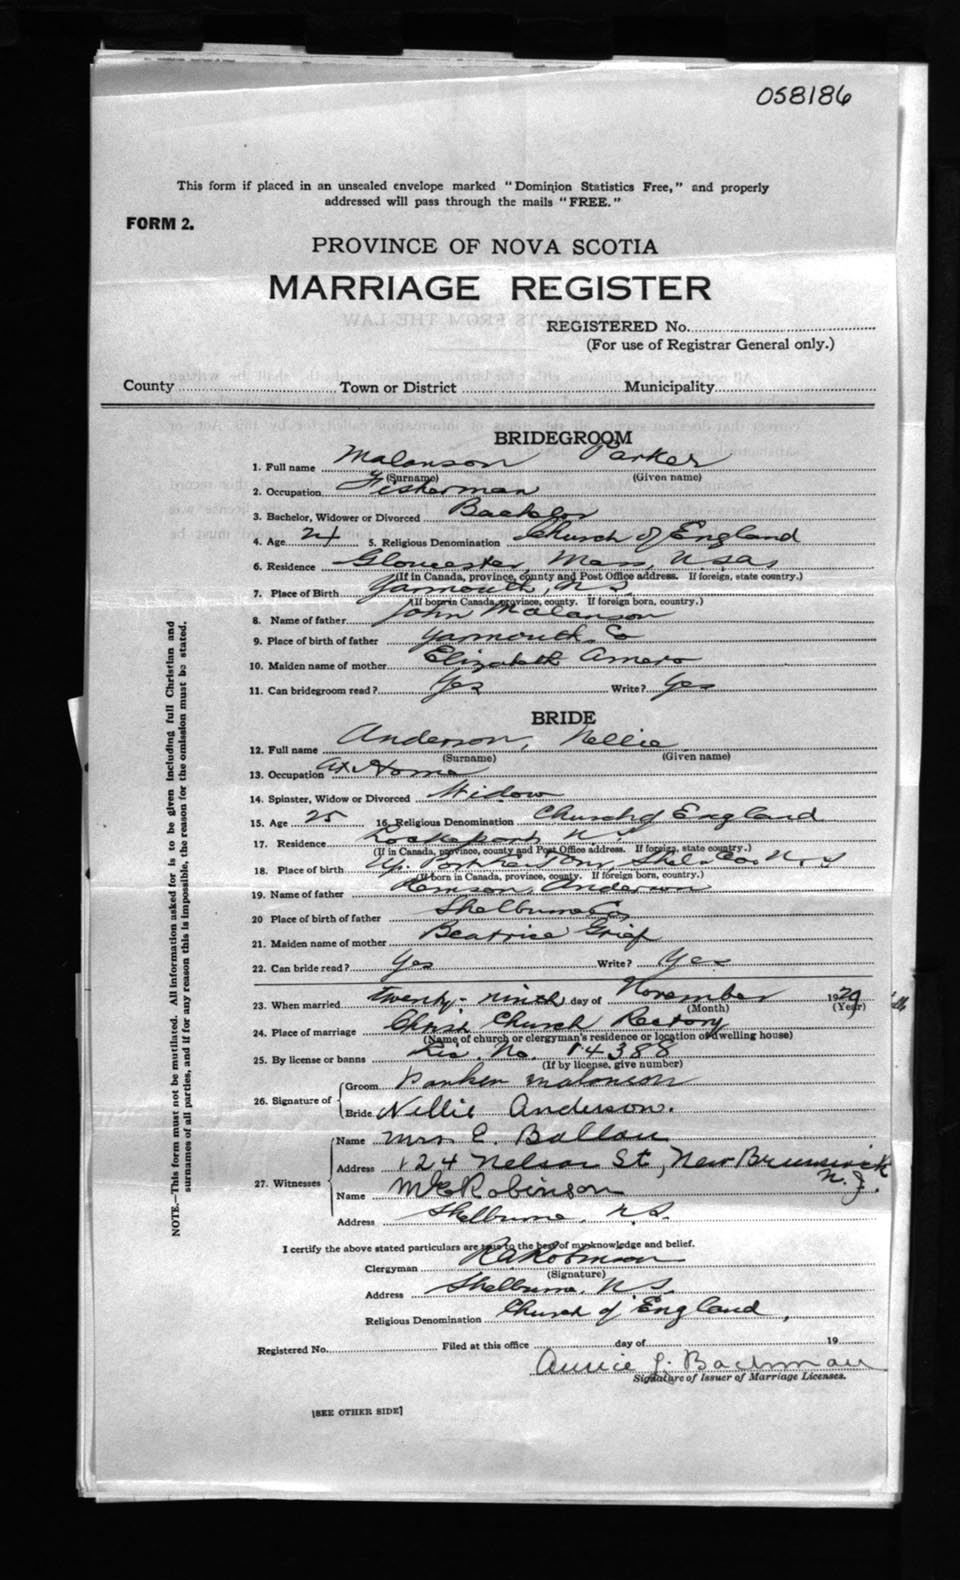 058186
This form if placed in an unsealed envelope marked "Dominion Statistics Free," and properly
addressed will pass through the mails "FREE."
FORM 2.
PROVINCE OF NOVA SCOTIA
MARRIAGE REGISTER
REGISTERED No.
(For use of Registrar General only.)
County Town or District Municipality
BRIDEGROOM
1. Full name Malonson Parker
(Surname) (Given name)
2. Occupation Fisherman
3. Bachelor, Widower or Divorced Bachelor
4. Age 5. Religious Denomination Church of England
6. Residence Gloucester, Mass, U.S.A,
(If in Canada, province, county and Post Office address. If foreign, state country.)
7. Place of Birth Yarmouth, N S
(If born in Canada, province, county. If foreign born, country.)
8. Name of father John Malonson
9. Place of birth of father Yarmouth Co
10. Maiden name of mother Elizabeth Amero
11. Can bridegroom read? Yes Write? Yes
BRIDE
12. Full name Anderson, Nellie
(Surname) (Given name)
13. Occupation At Home
14. Spinster, Widow or Divorced Widow
15. Age 25 16. Religious Denomination Church of England
17. Residence Lockeport, N S
(If in Canada, province, county and Post Office address. If foreign, state country.)
18. Place of birth Shel. Co. N S
(If born in Canada, province, county. If foreign born, country.)
19. Name of father Anderson
20 Place of birth of father Shelburne Co
21. Maiden name of mother Beatrice
22. Can bride read? Yes Write? Yes
23. When married twenty-ninth day of November 1929
(Month) (Year)
24. Place of marriage Christ Church Rectory
(Name of church or clergyman's residence or location of dwelling house)
25. By license or banns Lic. No. 14388
(If by license, give number)
26. Signature of Groom Parker Malonson
Bride Nellie Anderson.
27. Witnesses Name Mrs E. Ballou
Address 124 Nelson St, New Brunswick
N. J.
Name M E Robinson
Address Shelburne, N.S.
I certify the above stated particulars are true to the best of my knowledge and belief.
Clergyman Robinson
(Signature)
Address Shelburne, N.S.
Religious Denomination Church of England,
Registered No. Filed at this office day of 19
Annie L. Bachman
Signature of Issuer of Marriage Licenses.
[SEE OTHER SIDE]
NOTE.—This form must not be mutilated. All information asked for is to be given including full Christian and
surnames of all parties, and if for any reason this is impossible, the reason for the omission must be stated.